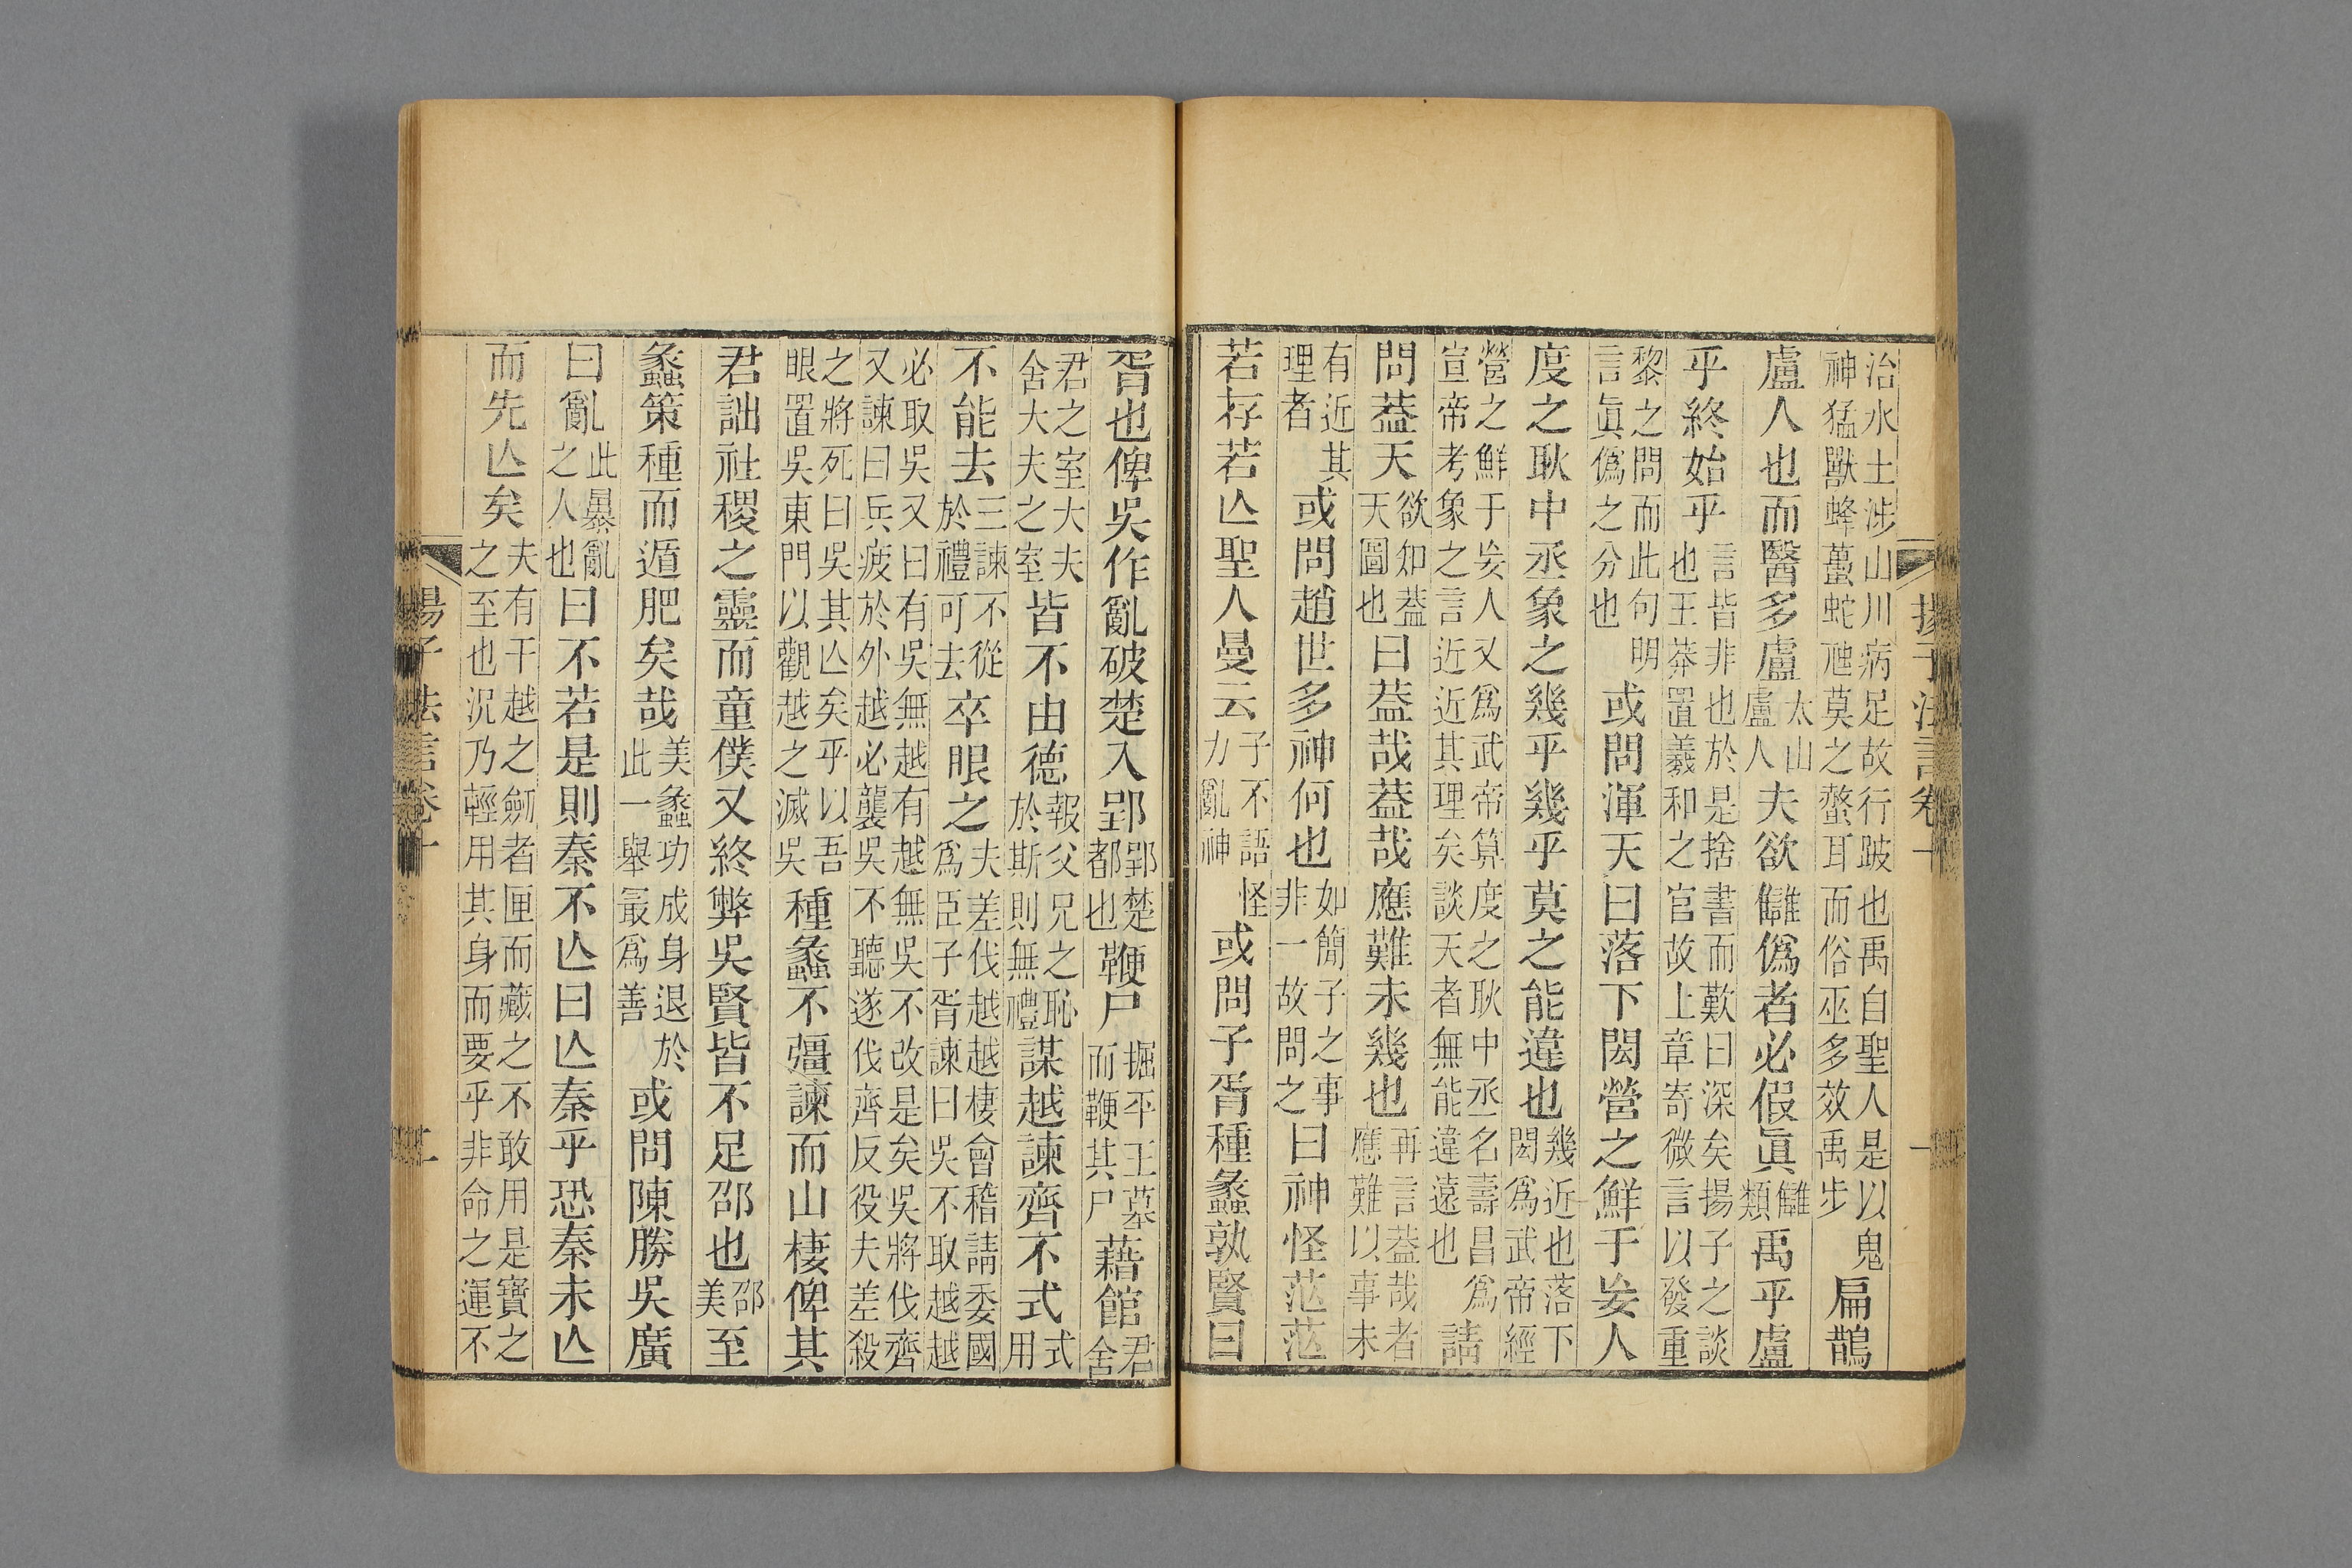 揚子法言卷十 一
治水土涉山川病足故行跛也禹自聖人是以鬼神猛獸蜂蠆蛇虺莫之螫耳而俗巫多效禹步扁鵲
盧人也而醫多盧太山盧人夫欲讎僞者必假眞讎類禹乎盧
乎終始乎言皆非也於是捨書而歎曰深矣揚子之談也王莽置羲和之官故上章寄微言以發重
黎之問而此句明言眞僞之分也或問渾天曰落下閎營之鮮于妄人
度之耿中丞象之幾乎幾乎莫之能違也幾近也落下閎爲武帝經
營之鮮于妄人又爲武帝算度之耿中丞名壽昌爲宣帝考象之言近近其理矣談天者無能違遠也請
問蓋天欲知蓋天圖也曰蓋哉蓋哉應難未幾也再言蓋哉者應難以事未
有近其理者或問趙世多神何也如簡子之事非一故問之曰神怪茫茫
若存若亾聖人曼云子不語怪力亂神或問子胥種蠡孰賢曰
胥也俾吳作亂破楚入郢郢楚都也鞭尸掘平王墓而鞭其尸藉館君舍
君之室大夫舍大夫之室皆不由德報父兄之恥於斯則無禮謀越諫齊不式式用
不能去三諫不從於禮可去卒眼之夫差伐越越棲會稽請委國爲臣子胥諫曰吳不取越越
必取吳又曰有吳無越有越無吳不改是矣吳將伐齊又諫曰兵疲於外越必襲吳不聽遂伐齊反役夫差殺
之將死曰吳其亾矣乎以吾眼置吳東門以觀越之滅吳種蠡不彊諫而山棲俾其
君詘社稷之靈而童僕又終弊吳賢皆不足邵也邵美至
蠡策種而遁肥矣哉美蠡功成身退於此一舉最爲善或問陳勝吳廣
曰亂此暴亂之人也曰不若是則秦不亾曰亾秦乎恐秦未亾
而先亾矣夫有干越之劒者匣而藏之不敢用是寶之之至也況乃輕用其身而要乎非命之運不
揚子法言卷十 二